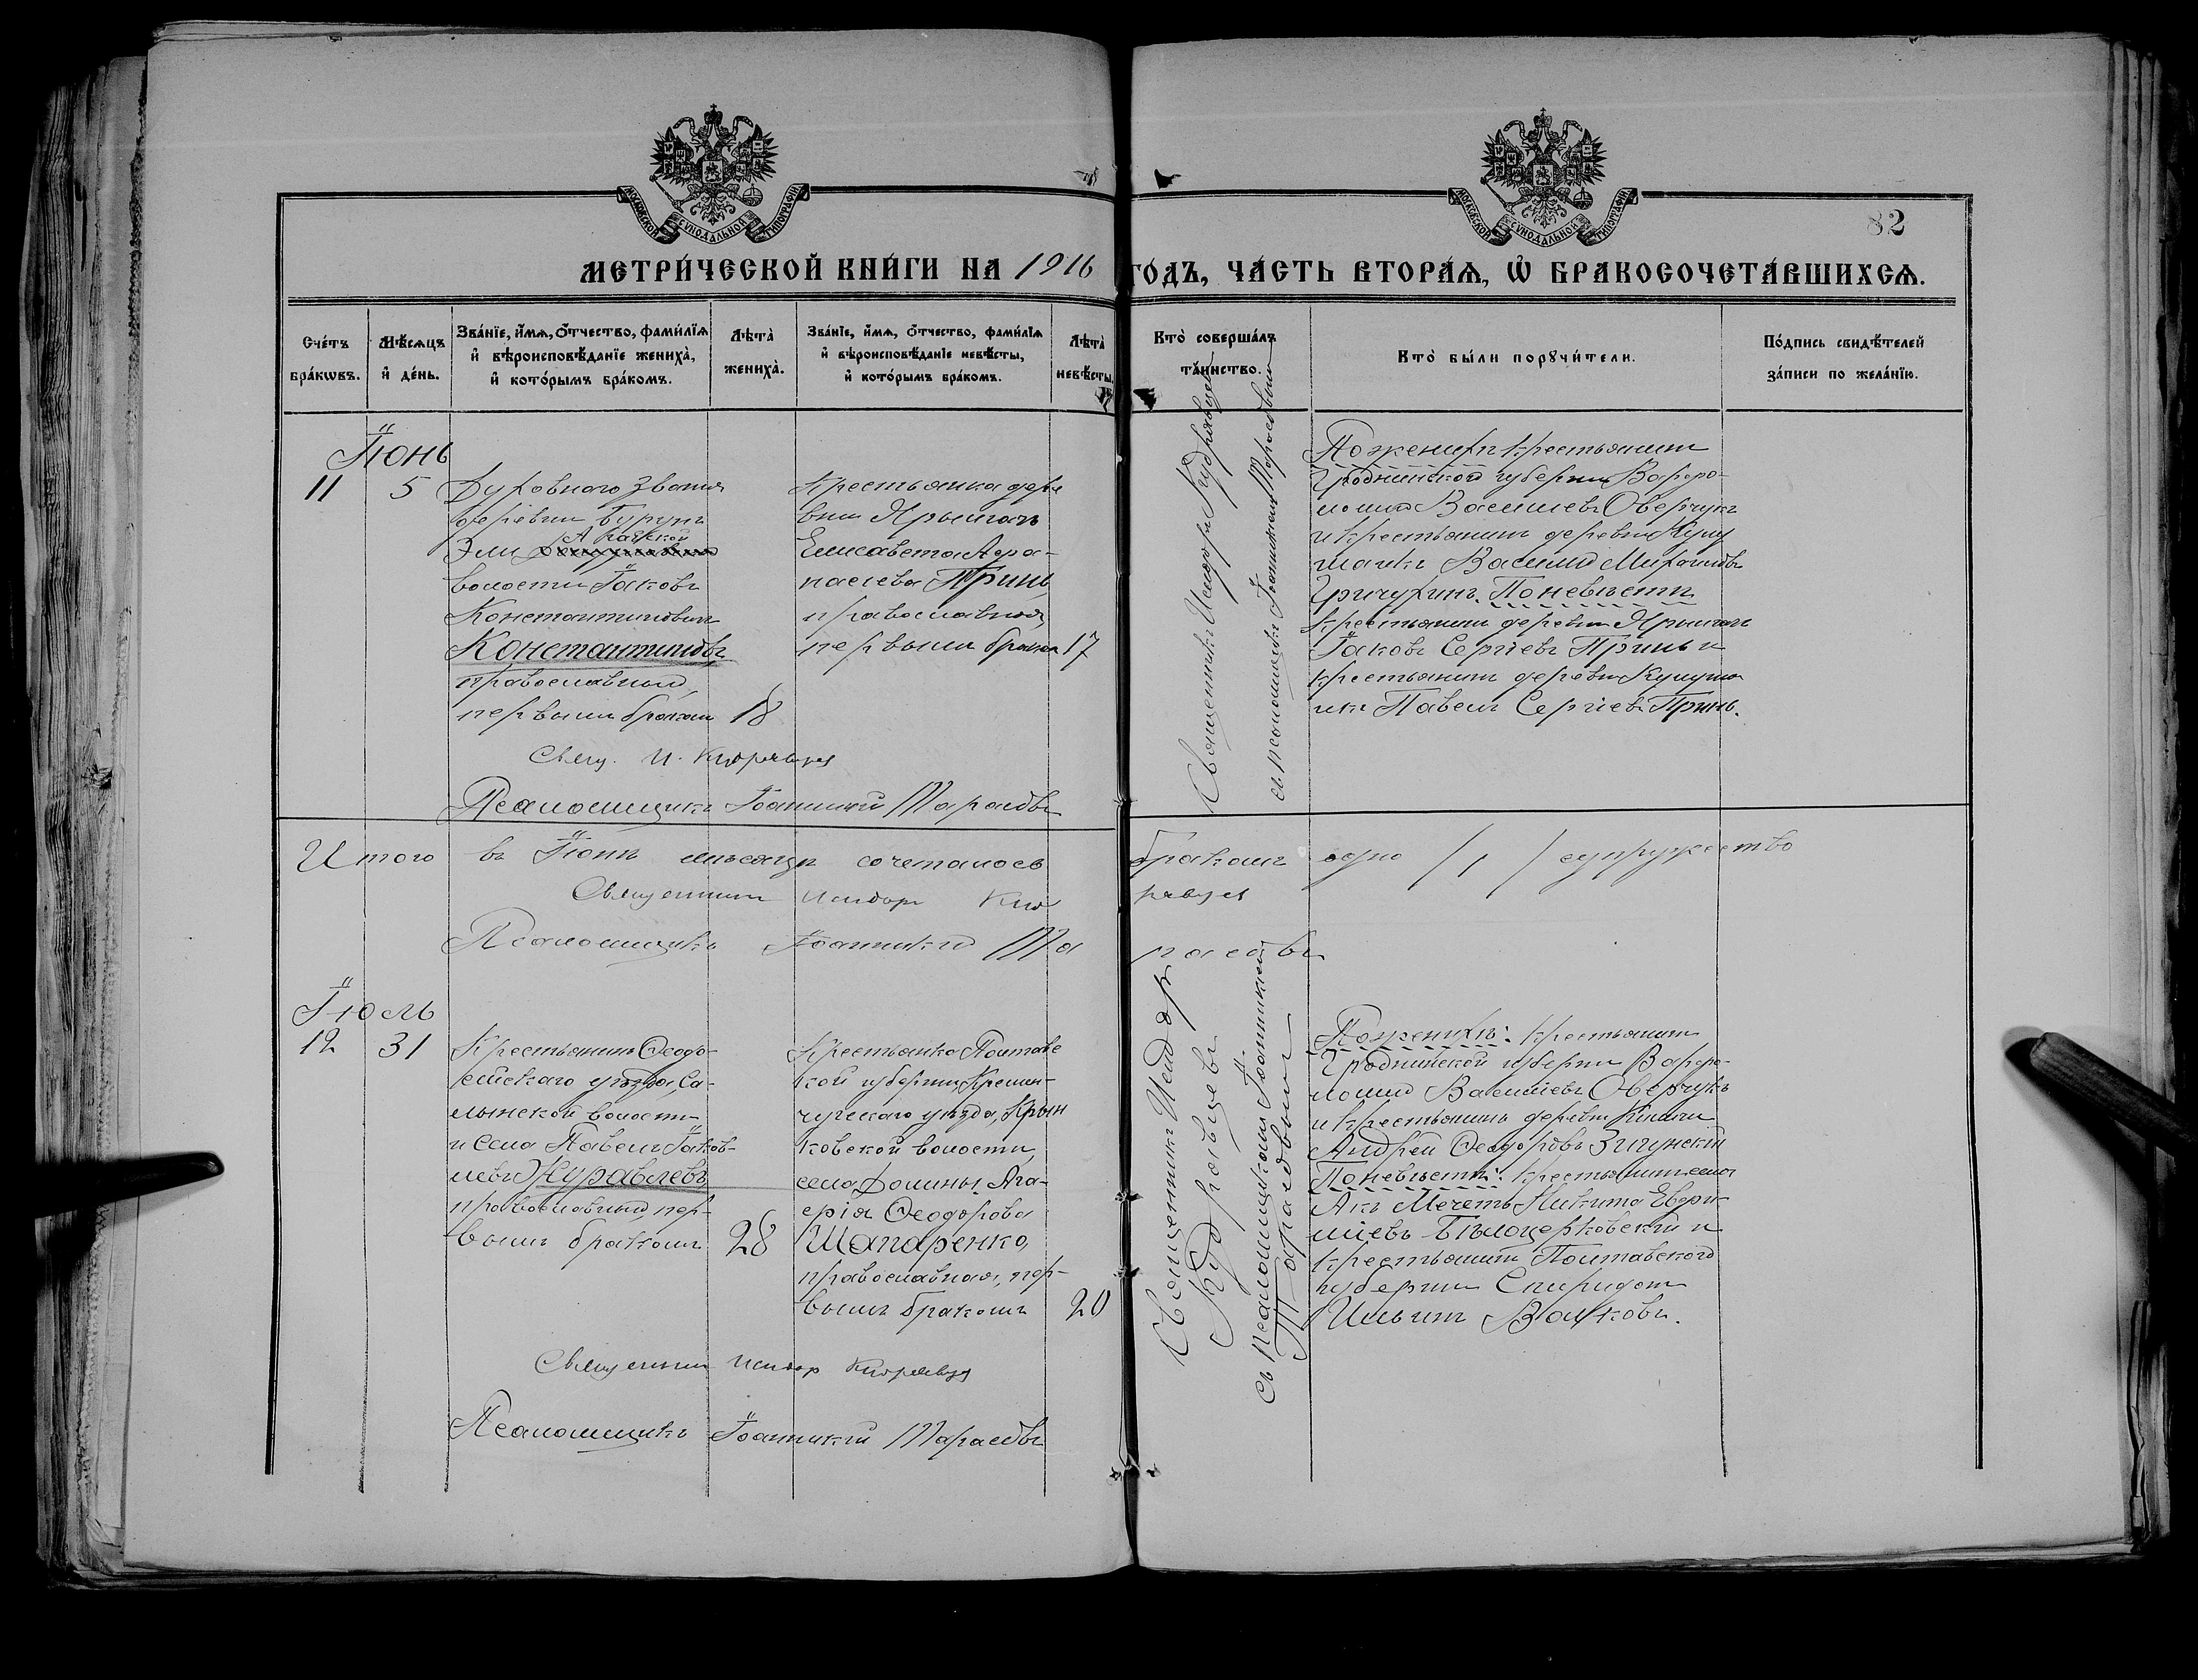 МОСКОВСКОЙ СѴНОДАЛЬНОЙ ТИПОГРАФІИ
МОСКОВСКОЙ СѴНОДАЛЬНОЙ ТИПОГРАФІИ
82
МЕТРИ́ЧЕСКОЙ КНИ́ГИ НА 1916 ГО́ДЪ, ЧА́СТЬ ВТОРА́Ѧ, Ѡ҆ БРАКОСОЧЕТА́ВШИХСѦ.
Сче́тъ бра́кѡвъ.
Мѣ́сѧцъ и҆ де́нь.
Зва́нїе, и҆́мѧ, ѻ҆́тчество, фами́лїѧ и҆ вѣроисповѣ́данїе жениха̀, и҆ кото́рымъ бра́комъ.
Лѣта̀ жениха̀.
Зва́нїе, и҆́мѧ, ѻ҆́тчество, фами́лїѧ и҆ вѣроисповѣ́данїе невѣ́сты, и҆ кото́рымъ бра́комъ.
Лѣта̀ невѣ́сты.
Кто̀ соверша́лъ та́инство.
Кто̀ бы́ли порꙋчи́тели.
По́дпись свидѣ́телей за́писи по жела́нїю.
Іюнь
11
5
Духовнаго званія
деревни Бурунъ
Эли
волости Іаковъ
Константиновичъ
Константиновъ,
православный,
первымъ бракомъ
18
Крестьянка дере
вни
Елисавета Аѳа-
насіева Принь,
православная,
первымъ бракомъ
17
Священникъ Исидоръ Кудрявцевъ
съ псаломщикомъ Іоанникіемъ Тарасовымъ
По женихѣ крестьянинъ
Гродненской губерніи Варѳо-
ломей Василіевъ Оверчукъ
и крестьянинъ деревни Кулу
шанкъ Василій Михаиловъ
Гричухинъ. По невѣстѣ
крестьянинъ деревни
Іаковъ Сергіевъ Принь и
крестьянинъ деревни Кулуша
нкъ Павелъ Сергіевъ Принь.
Свящ. И. Кудрявцев
Псаломщикъ Іоанникій Тарасовъ
Итого въ Іюнѣ мѣсяцѣ сочеталось бракомъ одно /1/ супружество
Священникъ Исидоръ Кудрявцев
Псаломщикъ Іоанникій Тарасовъ
Іюль
12
31
Крестьянинъ Ѳеодо-
сійскаго уѣзда, Са-
лынской волости
и села Павелъ Іаков-
левъ Журавлевъ,
православный, пер-
вымъ бракомъ
28
Крестьянка Полтавс
кой губерніи, Кремен-
чугскаго уѣзда, Крюк
ковской волости,
села Домины, Ага-
ѳрія Ѳеодорова
Шапаренко,
православная, пер-
вымъ бракомъ
20
Священникъ Исидоръ
Кудрявцевъ
съ псаломщикомъ Іоанникіемъ
Тарасовымъ
По женихѣ: крестьянинъ
Гродненской губерніи Варѳо-
ломей Василіевъ Оверчукъ
и крестьянинъ деревни
Андрей Ѳеодоровъ Зигунскій
По невѣстѣ: крестьянинъ села
Акъ Мечеть Никита
Бѣлоцерковскій и
крестьянинъ Полтавской
губерніи Спиридонъ
Ильинъ Волковъ.
Священник Исидор Кудрявцев
Псаломщикъ Іоанникій Тарасовъ